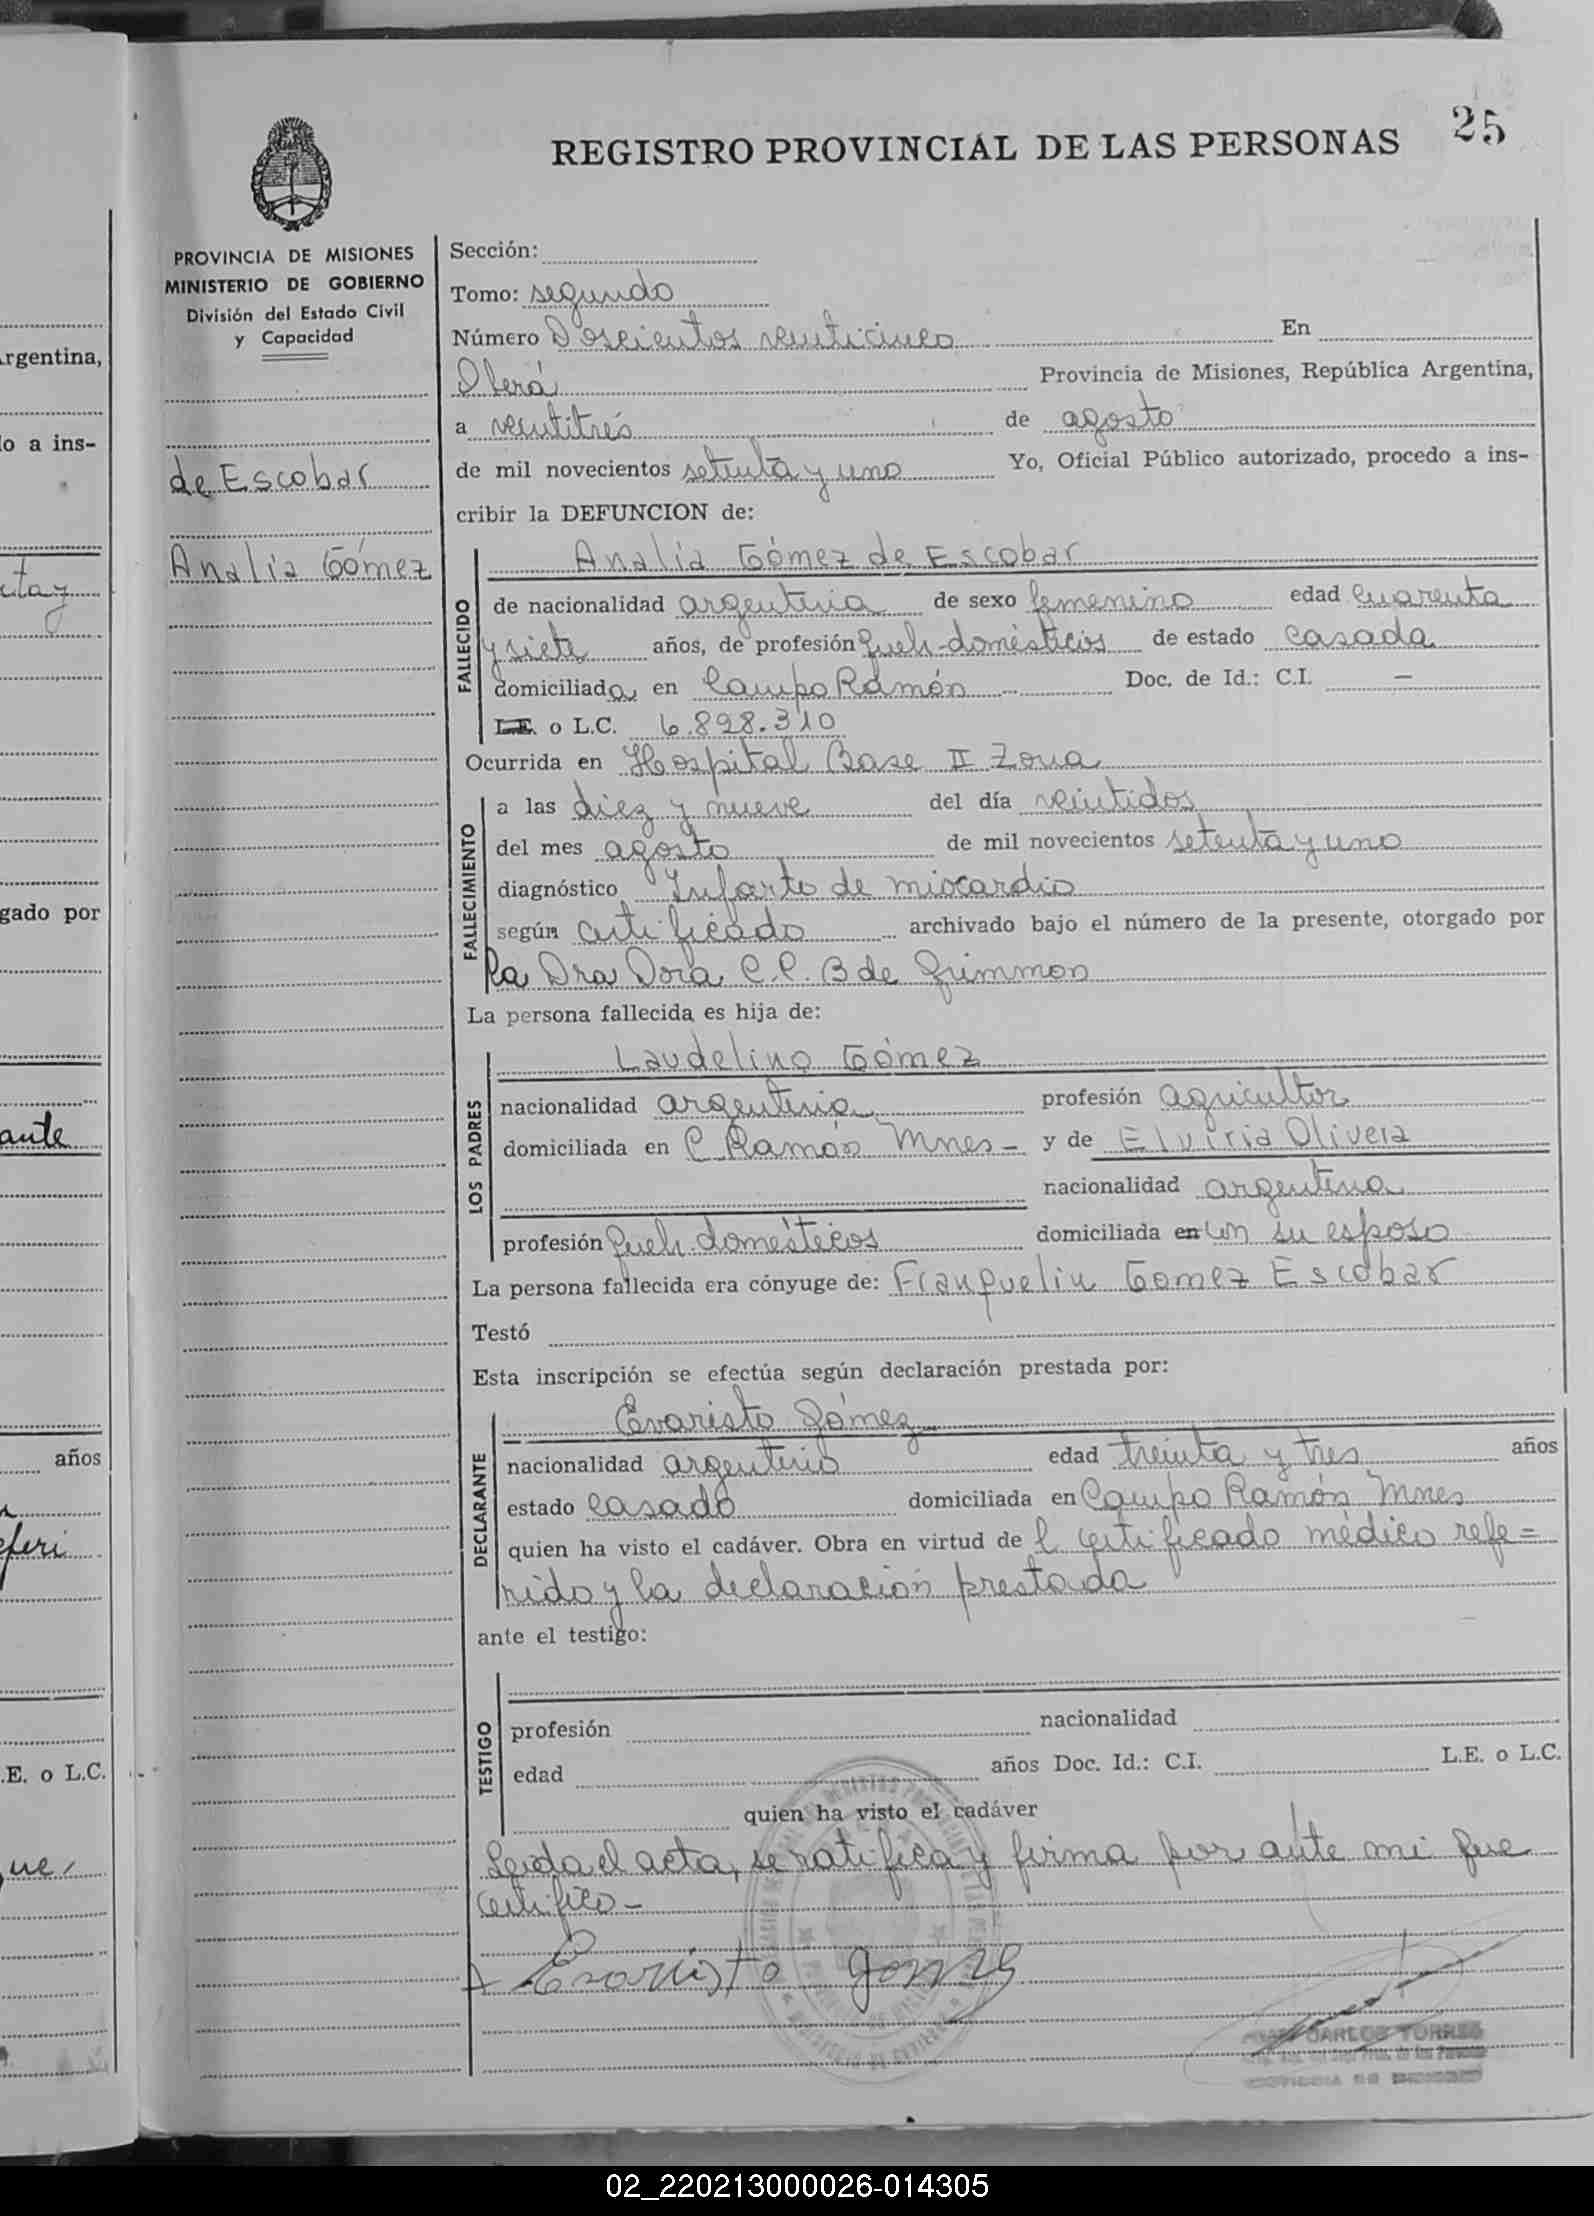 25
REGISTRO PROVINCIAL DE LAS PERSONAS
PROVINCIA DE MISIONES
MINISTERIO DE GOBIERNO
División del Estado Civil
y Capacidad
de Escobar
Analía Gómez
Sección:
Tomo: segundo
Número Doscientos veinticinco En
Oberá Provincia de Misiones, República Argentina,
a veintitrés de agosto
de mil novecientos setenta y uno Yo, Oficial Público autorizado, procedo a ins-
cribir la DEFUNCION de:
FALLECIDO
Analía Gómez de Escobar
de nacionalidad argentina de sexo femenino edad cuarenta
y siete años, de profesión queh-domésticos de estado casada
domiciliada en Campo Ramón Doc. de Id.: C.I. —
L.E. o L.C. 6.828.310
Ocurrida en Hospital Base II Zona
FALLECIMIENTO
a las diez y nueve del día veintidos
del mes agosto de mil novecientos setenta y uno
diagnóstico Infarto de miocardio
según certificado archivado bajo el número de la presente, otorgado por
la Dra Dora C.P. B de Grimmon
La persona fallecida es hija de:
LOS PADRES
Laudelino Gómez
nacionalidad argentina profesión agricultor
domiciliada en C. Ramón Mnes - y de Elviria Olivera
nacionalidad argentina
profesión queh. domésticos domiciliada en con su esposo
La persona fallecida era cónyuge de: Franquelin Gomez Escobar
Testó
Esta inscripción se efectúa según declaración prestada por:
DECLARANTE
Evaristo Gómez
nacionalidad argentino edad treinta y tres años
estado casado domiciliada en Campo Ramón Mnes
quien ha visto el cadáver. Obra en virtud de l certificado médico refe=
rido y la declaración prestada
ante el testigo:
TESTIGO
profesión nacionalidad
edad años Doc. Id.: C.I. L.E. o L.C.
quien ha visto el cadáver
Leida el acta, se ratifica y firma por ante mi que
certifico -
Evaristo gomez
CARLOS TORRES
rgentina,
o a ins-
gado por
ante
años
feri
.E. o L.C.
ue,
02_220213000026-014305